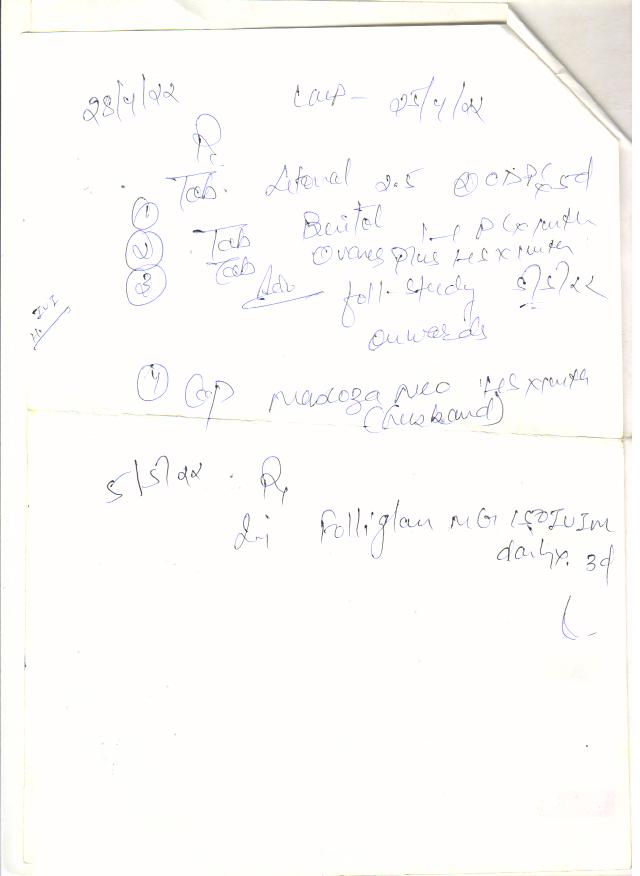 28/4/22 LMP - 25/4/22
Rx
① Tab. Letoval 2.5 ② OD PC x 5d
② Tab 1-1 PC x month
③ Tab Ovares plus HS x month
Adv foll. study 5/5/22
onwards
IUI
④ Cap Maxoza Neo HS x month
(husband)
5/5/22. Rx
Inj Folliglan MG 150 IU IM
daily x 3d